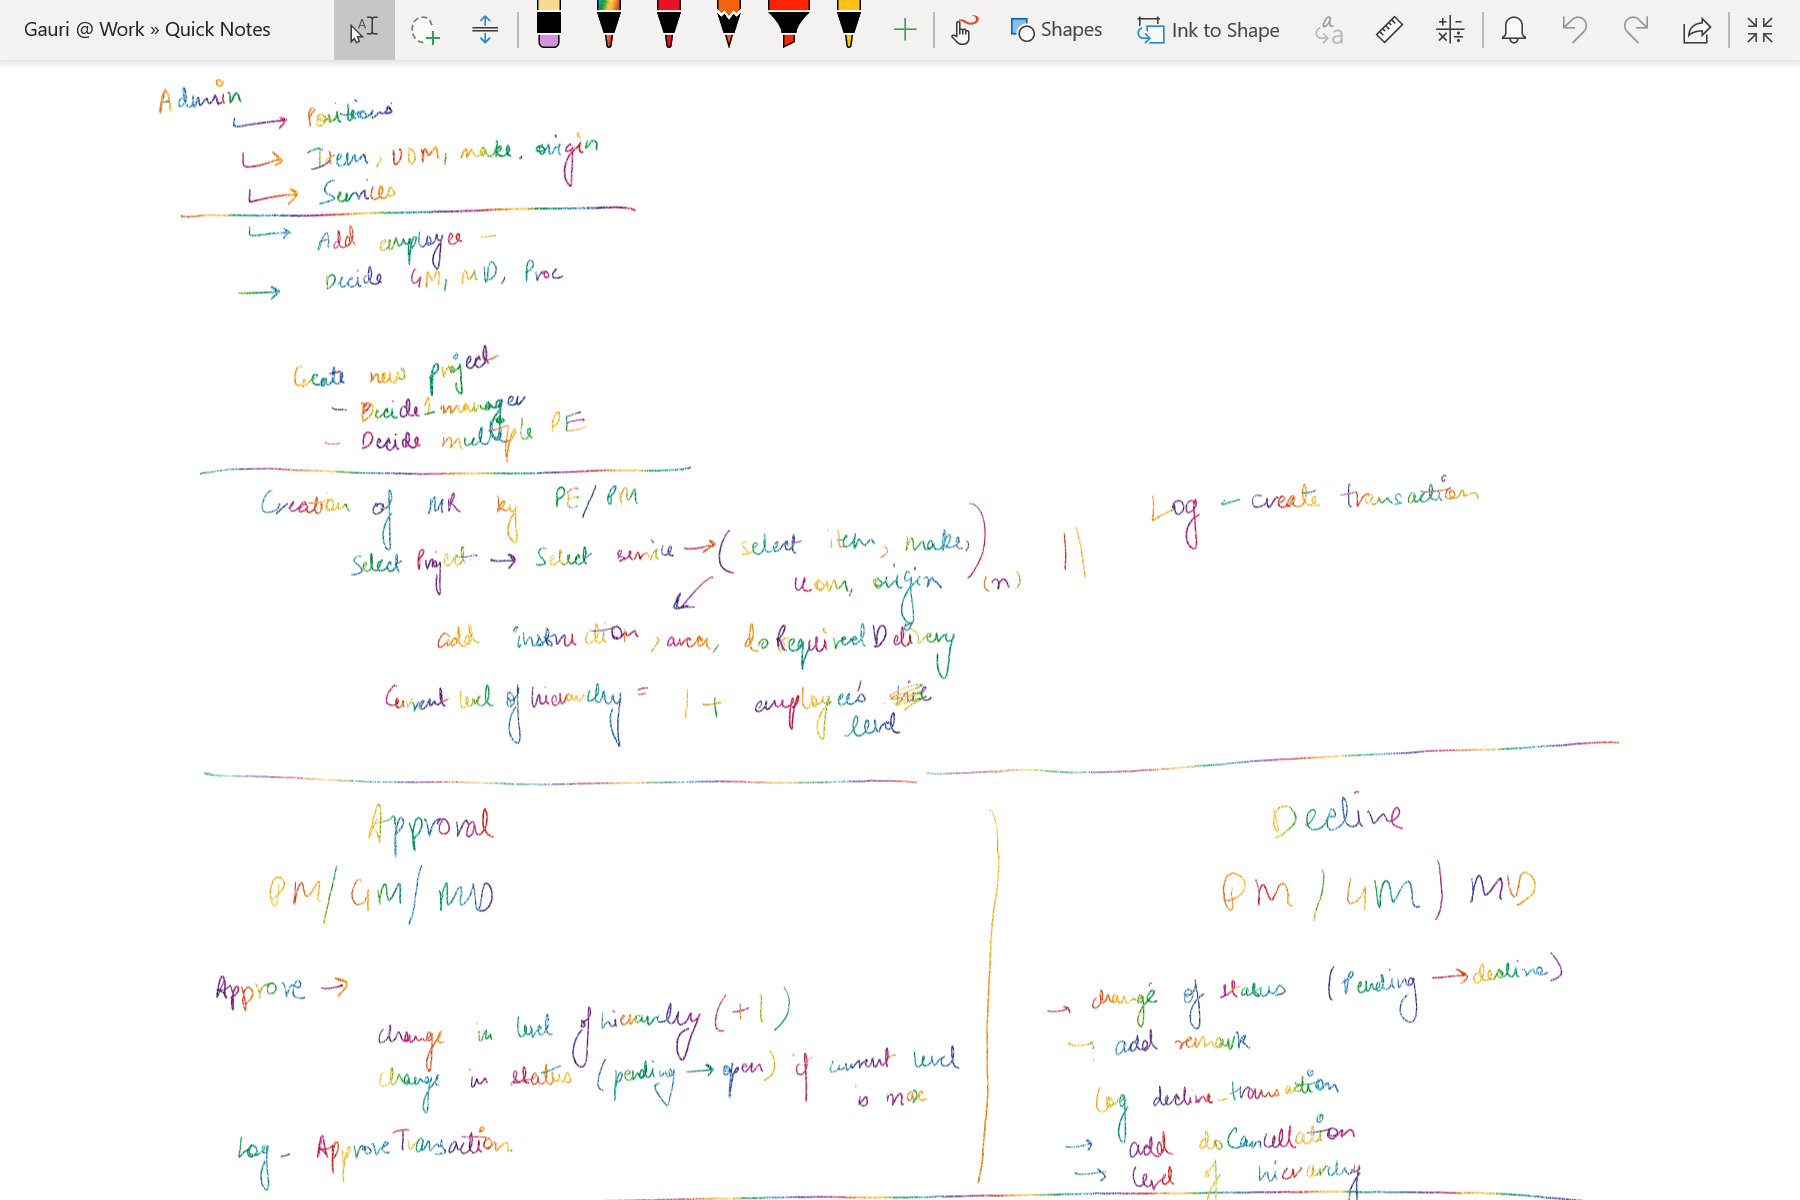 Gauri @ Work » Quick Notes
Shapes
Ink to Shape
Admin
Positions
Item, UOM, make, origin
Services
Add employee -
Decide GM, MD, Proc
Create new project
- Decide 1 manager
- Decide multiple PE
Creation of MR by PE/PM
Log - create transaction
Select Project → Select service → (select item, make,
uom, origin) (n)
add instruction, area, doRequiredDelivery
Current level of hierarchy = 1 + employee's
level
Approval
Decline
PM/GM/MD
PM/GM/MD
Approve →
change in level of hierarchy (+1)
change in status (pending → open) if current level
is max
Log - ApproveTransaction
→ change of status (Pending → decline)
→ add remark
Log decline_transaction
→ add doCancellation
→ level of hierarchy